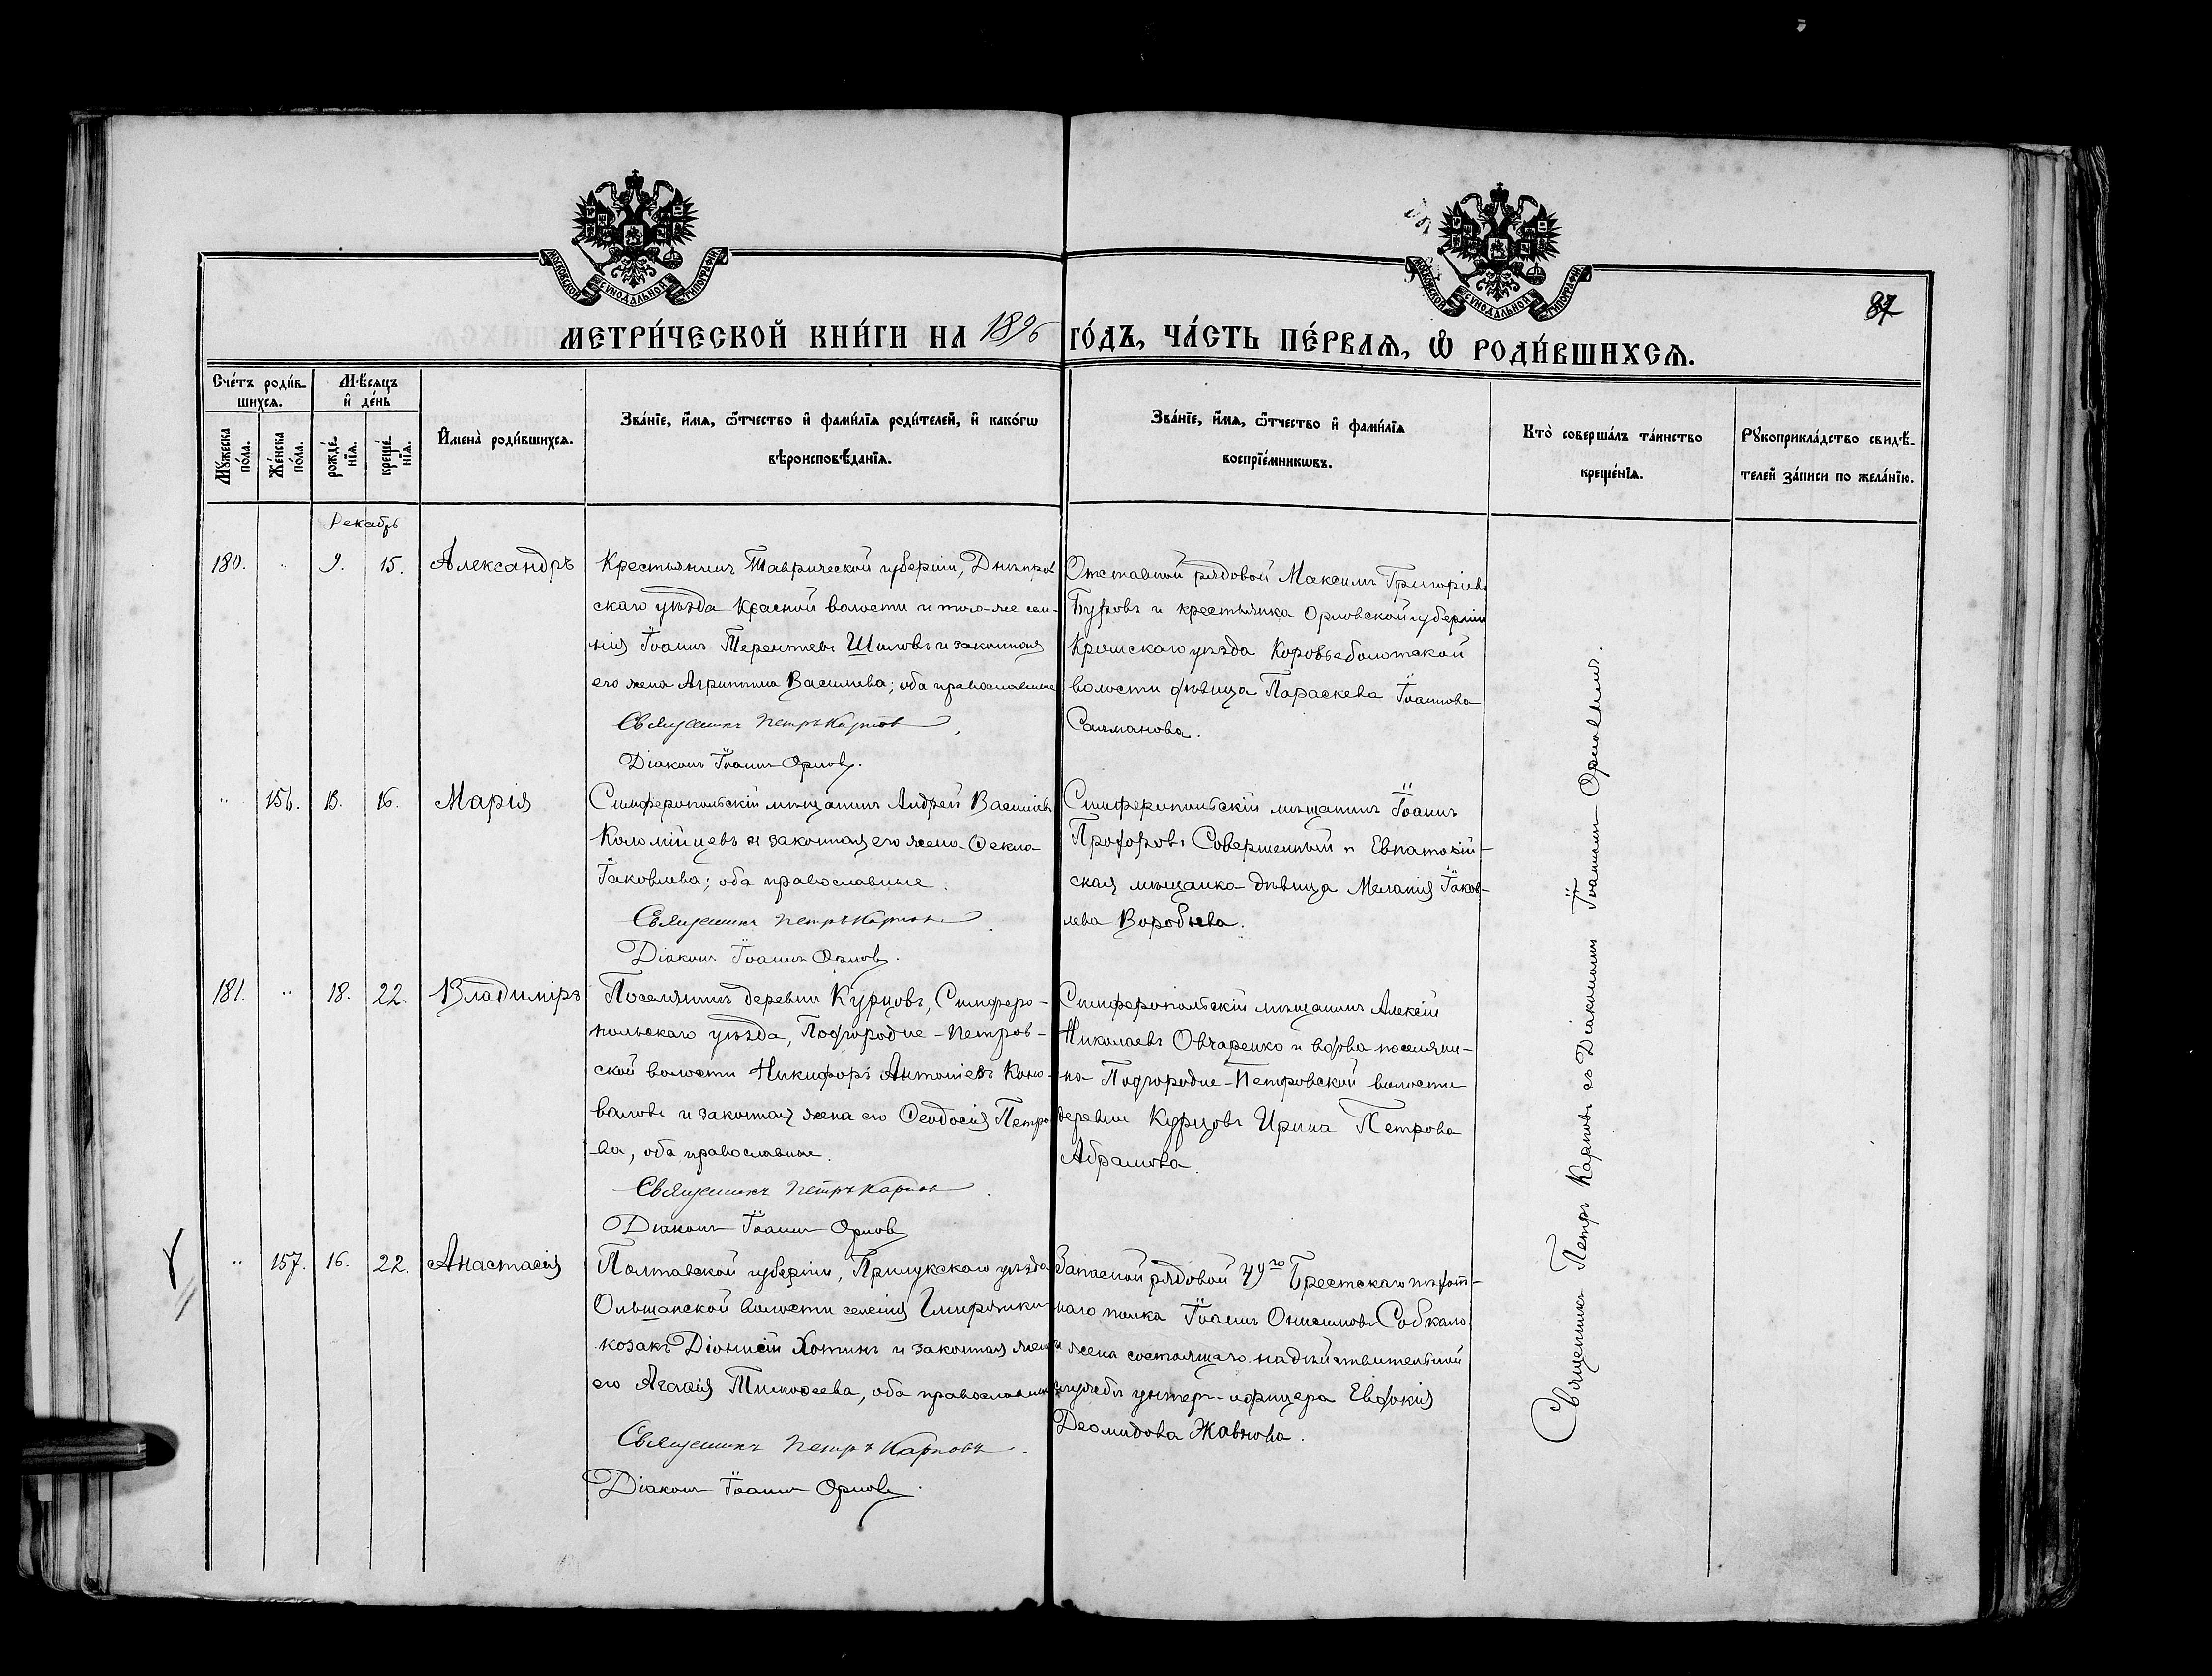 МОСКОВСКОЙ СѴНОДАЛЬНОЙ ТИПОГРАФІИ
МОСКОВСКОЙ СѴНОДАЛЬНОЙ ТИПОГРАФІИ
87
МЕТРИ́ЧЕСКОЙ КНИ́ГИ НА 1896 ГО́ДЪ, ЧА́СТЬ ПЕ́РВАѦ, Ѽ РОДИ́ВШИХСѦ.
Сче́тъ роди́в-
шихсѧ.
Мѣ́сяцъ
и҆ де́нь
Мꙋ́жеска
по́ла.
Же́нска
по́ла.
рожде́-
нїѧ.
креще́-
нїѧ.
И҆мена̀ роди́вшихсѧ.
Зва́нїе, и҆́мѧ, ѻ҆́тчество и҆ фами́лїѧ роди́телей, и҆ како́гѡ
вѣроисповѣ́данїѧ.
Зва́нїе, и҆́мѧ, ѻ҆́тчество и҆ фами́лїѧ
воспрїе́мникѡвъ.
Кто̀ соверша́лъ та́инство
креще́нїѧ.
Рꙋкоприкла́дство свидѣ́-
телей за́писи по жела́нїю.
Декабрь
180. " 9. 15. Александръ
Крестьянинъ Таврической губерніи, Днѣпров
скаго уѣзда Красной волости и того-же селе-
нія Іоаннъ Терентьевъ Шиловъ и законная
его жена Агриппина Васильева; оба православные
Священникъ Петръ Карповъ
Діаконъ Іоаннъ Орловъ.
Отставной рядовой Максимъ Григорьевъ
Буровъ и крестьянка Орловской губерніи
Кромскаго уѣзда Коровьеболотской
волости дѣвица Параскева Іоаннова
Салманова.
" 156. 13. 16. Марія
Симферопольскій мѣщанинъ Андрей Васильевъ
Коломійцевъ и законная его жена Ѳекла
Іаковлева; оба православные.
Священникъ Петръ Карповъ.
Діаконъ Іоаннъ Орловъ.
Симферопольскій мѣщанинъ Іоаннъ
Прохоровъ Совершенный и Евпаторій-
ская мѣщанка дѣвица Меланія Іаков-
лева Воробьева.
181. " 18. 22. Владиміръ
Поселянинъ деревни Курцовъ, Симферо-
польскаго уѣзда, Подгородне-Петров-
ской волости Никифоръ Антоніевъ Коно-
валовъ и законная жена его Ѳеодосія Петро
ва, оба православные.
Священникъ Петръ Карповъ.
Діаконъ Іоаннъ Орловъ
Симферопольскій мѣщанинъ Алексій
Николаевъ Овчаренко и вдова поселяни-
на Подгородне-Петровской волости
деревни Курцовъ Ирина Петрова
Абрамова.
" 157. 16. 22. Анастасія
Полтавской губерніи, Прилукскаго уѣзда
Ольшанской волости селенія
козакъ Діонисій Хотинъ и законная жена
его Агафія Тимоѳеева, оба православные
Священникъ Петръ Карповъ.
Діаконъ Іоаннъ Орловъ.
Запасной рядовой 49го Брестскаго пѣхот-
наго полка Іоаннъ Онисимовъ Собкало
и жена состоящаго на дѣйствительной
службѣ унтеръ-офицера Евдокія
Деомидова Жавнова.
Священникъ Петръ Карповъ съ Діакономъ Іоанномъ Орловымъ.